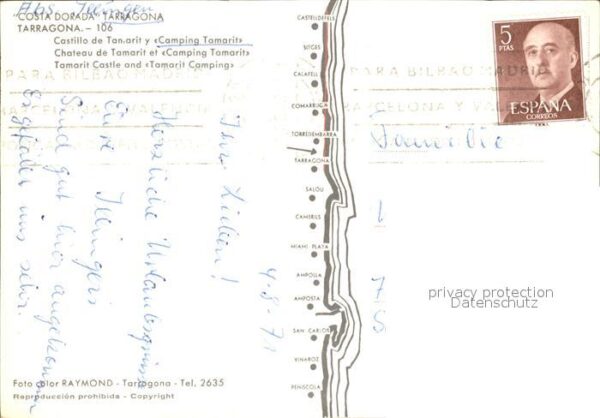 Abs. Illinger
"COSTA DORADA" TARRAGONA
TARRAGONA. — 106
Castillo de Tamarit y «Camping Tamarit»
Chateau de Tamarit et «Camping Tamarit»
Tamarit Castle and «Tamarit Camping»
4-8-71
Ihr Lieben!
Herzliche Urlaubsgrüsse
Eure Illingers
Sind gut hier angekommen
CASTELLDEFELS
SITGES
CALAFELL
COMARRUGA
TORREDEMBARRA
TARRAGONA
SALOU
CAMBRILS
MIAMI PLAYA
AMPOLLA
AMPOSTA
SAN CARLOS
VINAROZ
PEÑISCOLA
PARA BILBAO MADRID
BARCELONA Y VALENC
PARA BILBAO MADRID
BARCELONA Y VALEN
5
PTAS
ESPAÑA
CORREOS
Familie
privacy protection
Datenschutz
Foto Color RAYMOND - Tarragona - Tel. 2635
Reproducción prohibida - Copyright